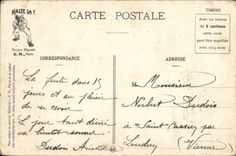 HALTE là !
Marque Déposée
E. R., Paris
CARTE POSTALE
TIMBRE
Avec un timbre
de 5 centimes
cette carte
peut être expédiée
avec cinq mots
CORRESPONDANCE
ADRESSE
La suite dans 15
jours et au plaisir
de se revoir
Le jour tant désiré
va bientôt sonner
Dardois Aristide
Monsieur
Norbert Dardois
à Saint
Loudun (Vienne)